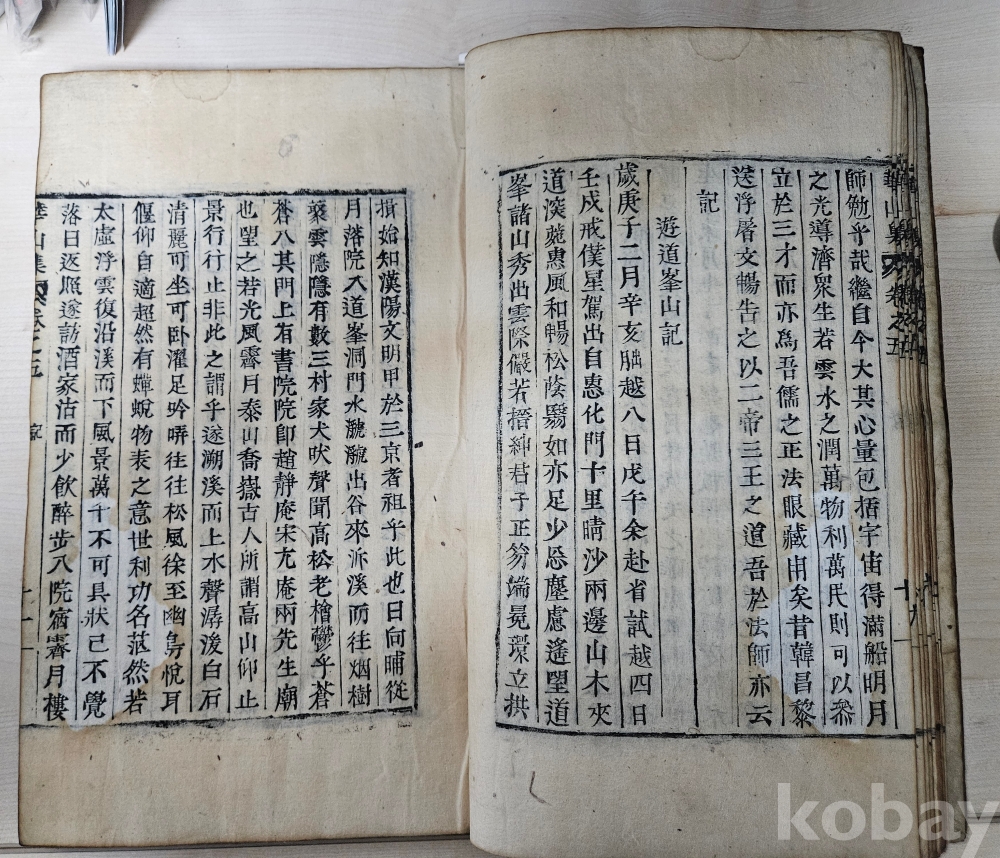 師勉乎哉繼自今大其心量包括宇宙得滿船明月
之光導濟眾生若雲水之潤萬物利萬民則可以叅
立於三才而亦爲吾儒之正法眼藏用矣昔韓昌黎
送浮屠文暢告之以二帝三王之道吾於法師亦云
記
遊道峯山記
歲庚子二月辛亥朏越八日戊午余赴省試越四日
壬戌戒僕星駕出自惠化門十里晴沙兩邊山木夾
道深蔸惠風和暢松蔭翳如亦足少忘塵慮遙望道
峯諸山秀出雲際儼若搢紳君子正笏端冕環立拱
揖始知漢陽文明甲於三京者祖乎此也日向晡從
月落院入道峯洞門水㶁㶁出谷來泝溪而往烟樹
蓊雲隱隱有數三村家犬吠聲聞高松老檜鬱乎蒼
蒼八其門上有書院院卽趙靜庵宋尤庵兩先生廟
也望之若光風霽月泰山喬嶽古人所謂高山仰止
景行行止非此之謂乎遂溯溪而上水聲潺湲白石
清麗可坐可卧濯足吟哢往往松風徐至幽鳥悅耳
偃仰自適超然有蟬蛻物表之意世利功名茫然若
太虛浮雲復沿溪而下風景萬千不可具狀已不覺
落日返照遂訪酒家沽而少飮醉步入院宿霽月樓
華山集 卷之五
華山集 卷之五
kobay